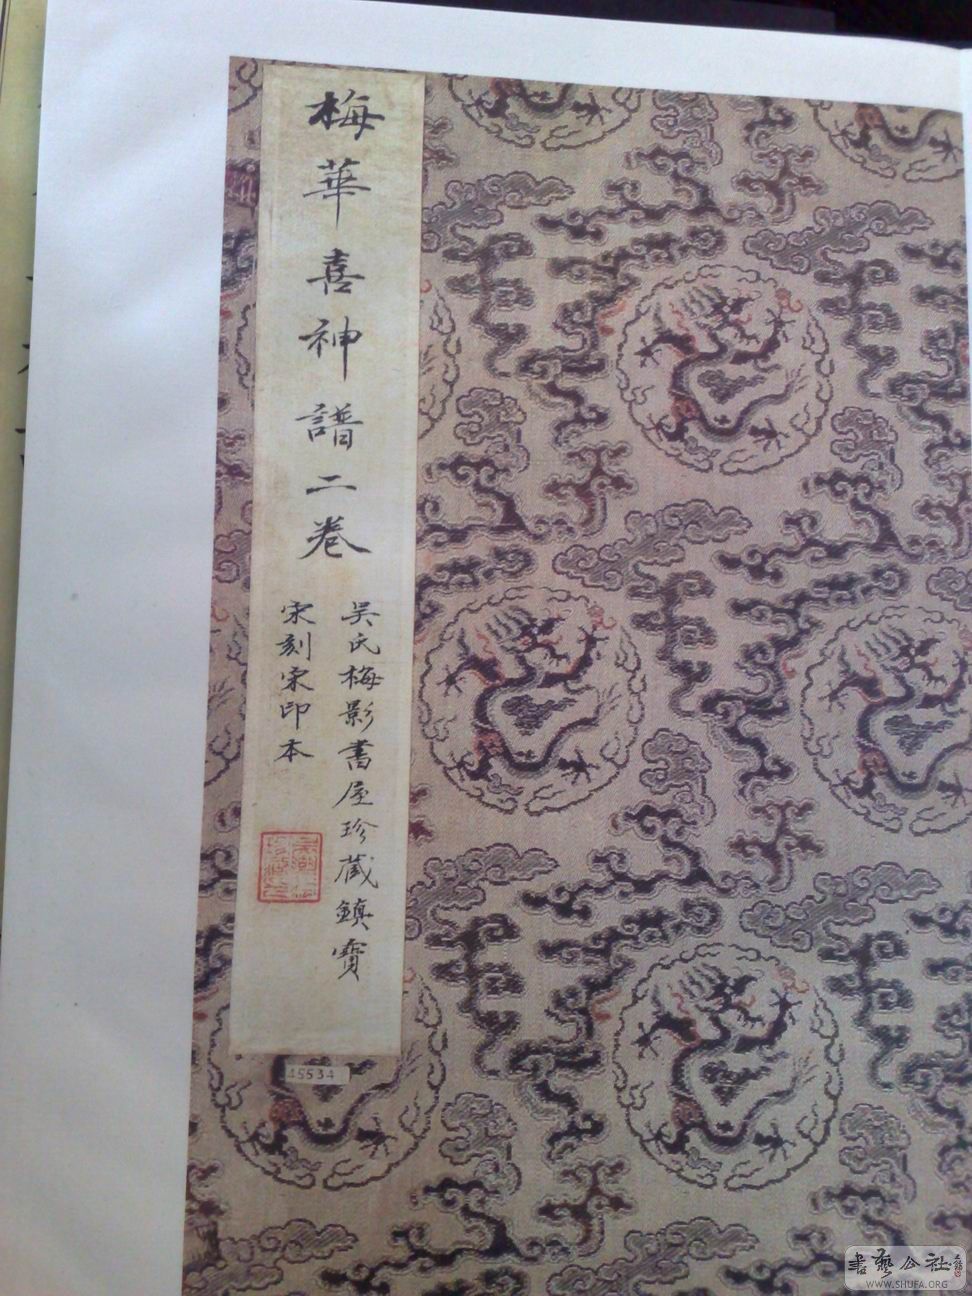 梅華喜神譜二卷
吳氏梅影書屋珍藏鎮寶
宋刻宋印本
45534
書藝公社
WWW.SHUFA.ORG